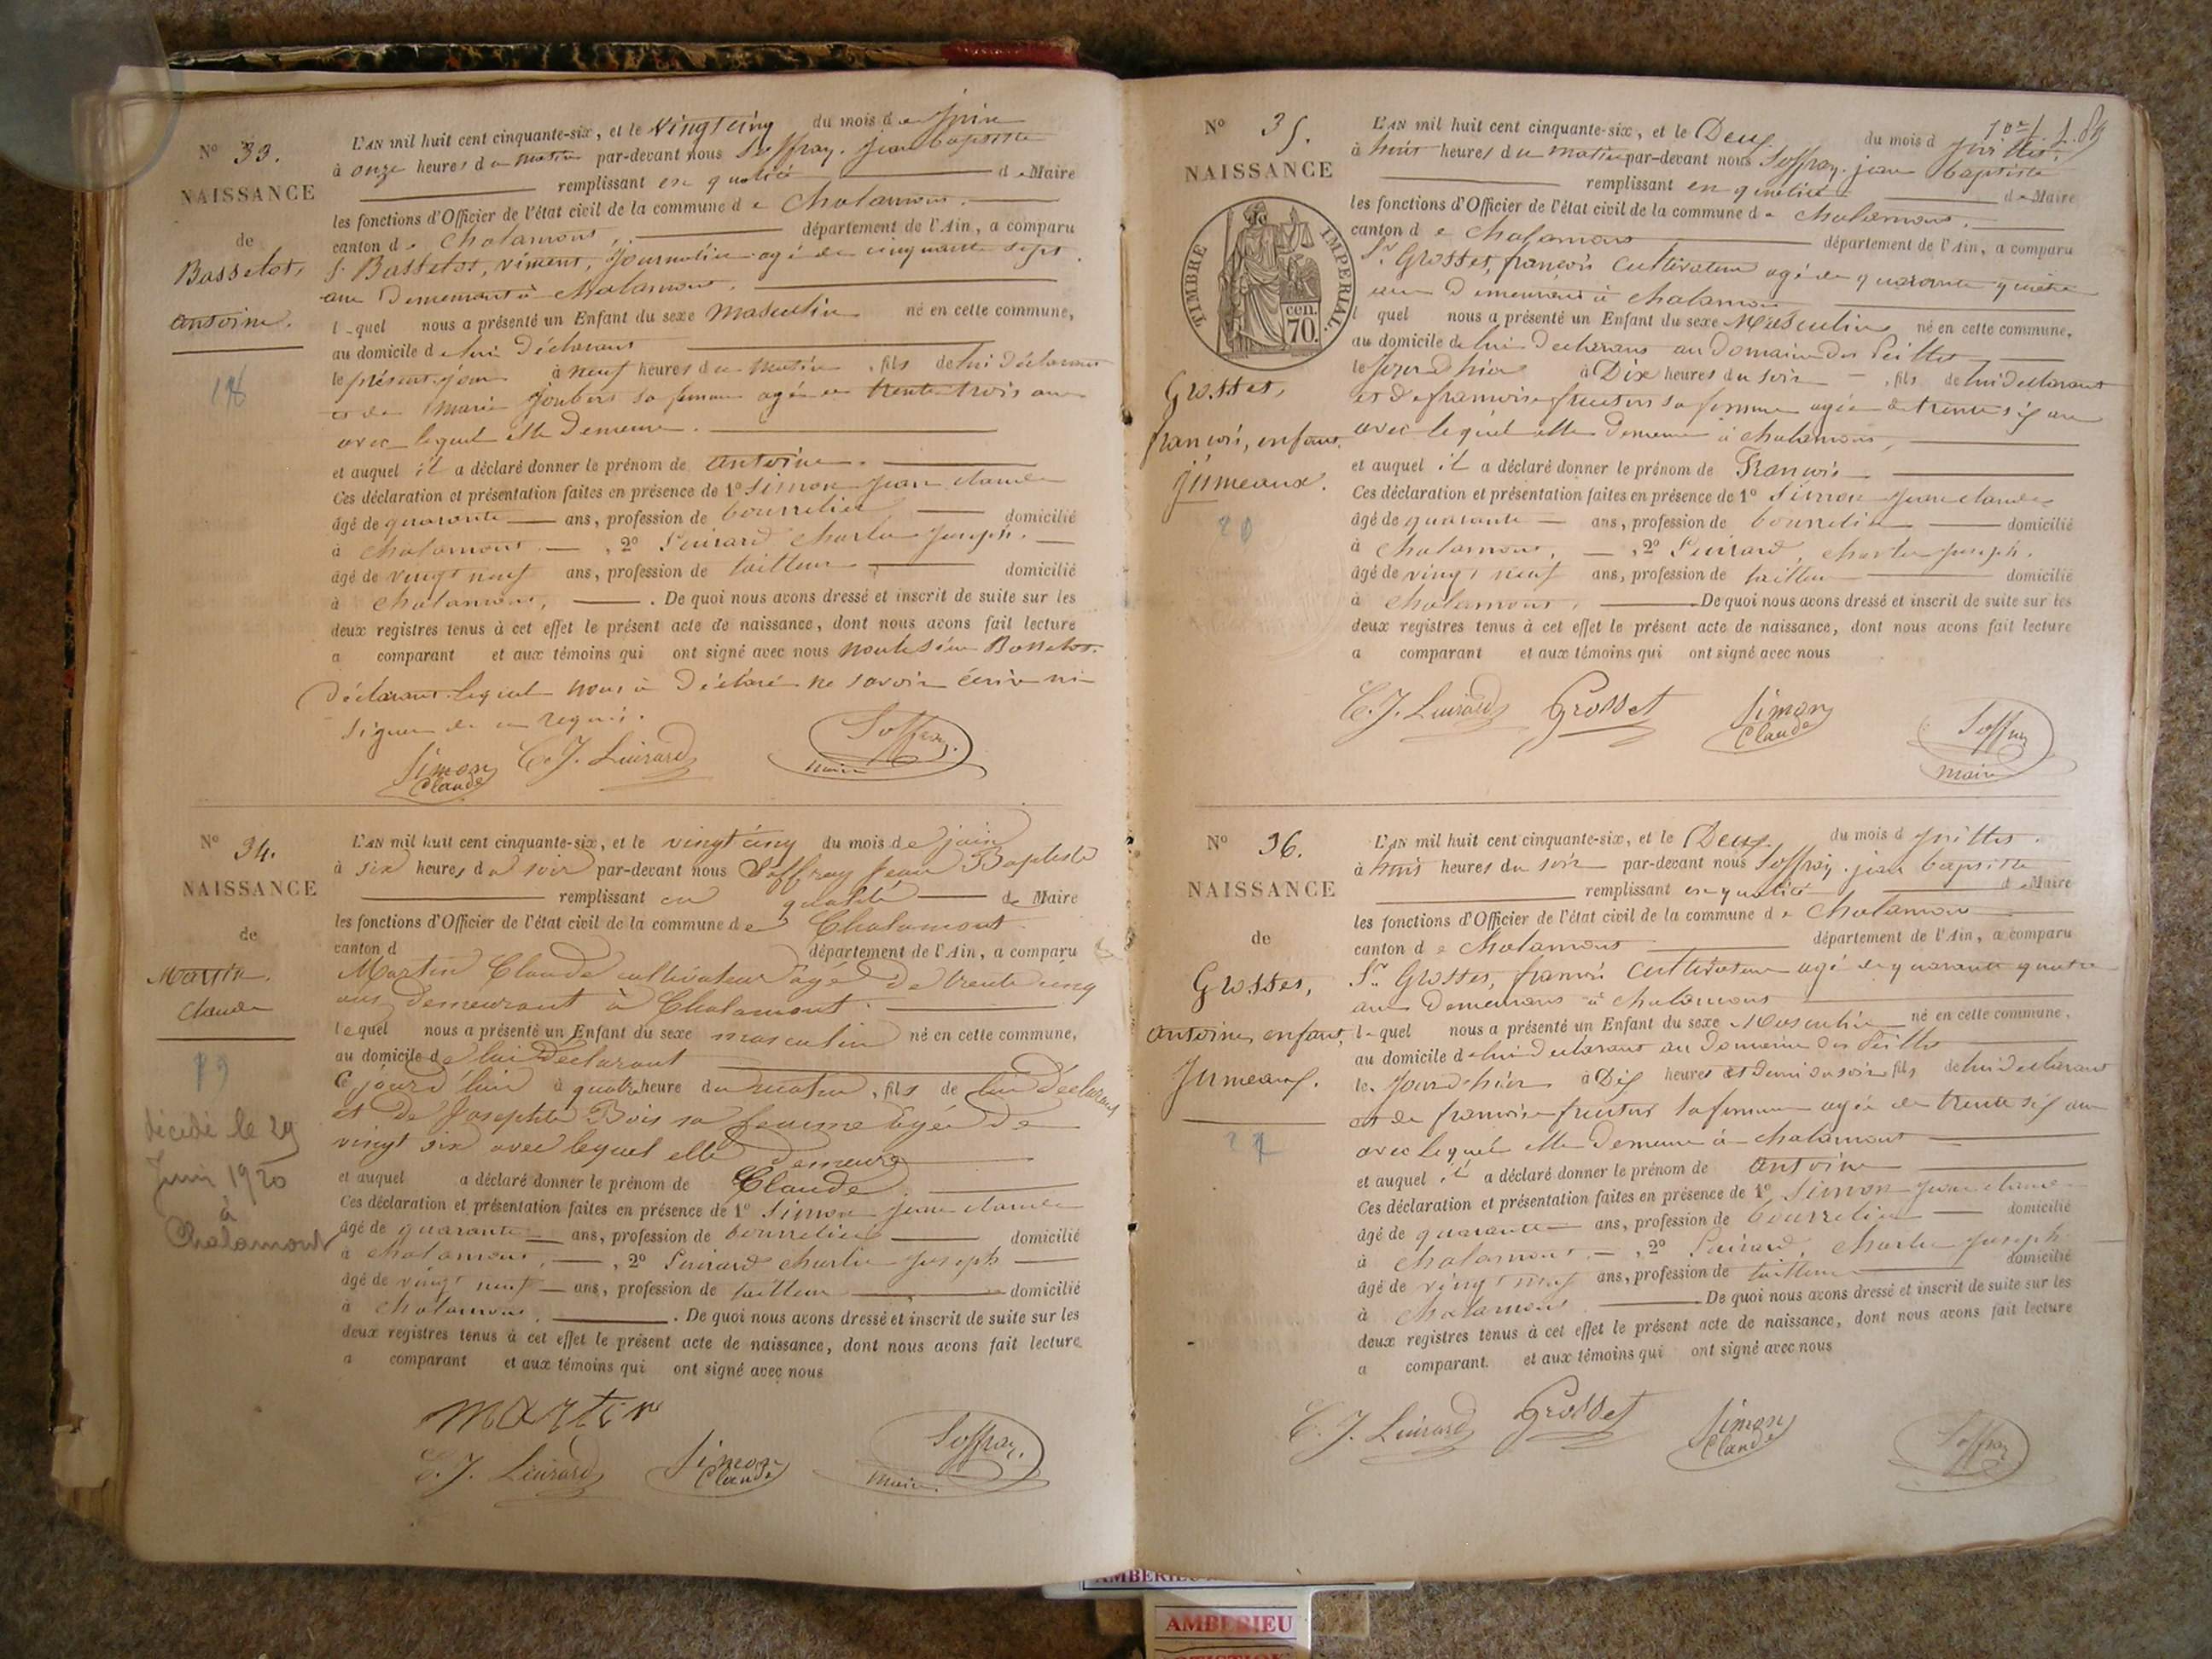 N° 33.
NAISSANCE
de
Bassetot,
Antoine.
18
L'AN mil huit cent cinquante-six, et le vingt cinq du mois de juin
à onze heures du matin par-devant nous Soffray. jean baptiste
remplissant en qualité de Maire
les fonctions d'Officier de l'état civil de la commune de Chalamont.
canton de Chalamont, département de l'Ain, a comparu
S. Bassetot, vincent, journalier agé de cinquante sept
ans Demeurant à chalamont.
lequel nous a présenté un Enfant du sexe Masculin né en cette commune,
au domicile de lui Déclarant
le présent jour à neuf heures du matin, fils de lui déclarant
et de Marie Joubert sa femme agée de trente trois ans
avec lequel elle Demeure.
et auquel il a déclaré donner le prénom de Antoine.
Ces déclaration et présentation faites en présence de 1° Simon jean claude
âgé de quarante ans, profession de bourrelier domicilié
à chalamont. , 2° Luirard Charles joseph.
âgé de vingt neuf ans, profession de tailleur domicilié
à chalamont, . De quoi nous avons dressé et inscrit de suite sur les
deux registres tenus à cet effet le présent acte de naissance, dont nous avons fait lecture
a comparant et aux témoins qui ont signé avec nous Bassetot.
Déclarant lequel nous a Déclaré ne savoir écrire ni
signer de ce requis.
Simon Claude C. J. Luirard Soffray. maire
N° 34.
NAISSANCE
de
Martin.
Claude
19
décédé le 29
Juin 1920
à
Chalamont
L'AN mil huit cent cinquante-six, et le vingt cinq du mois de juin
à six heures du soir par-devant nous Soffray Jean Baptiste
remplissant en qualité de Maire
les fonctions d'Officier de l'état civil de la commune de Chalamont
canton d département de l'Ain, a comparu
Martin Claude cultivateur âgé de trente cinq
ans demeurant à Chalamont.
lequel nous a présenté un Enfant du sexe masculin né en cette commune,
au domicile de lui déclarant
Ce jourd'hui à quatre heure du matin, fils de lui déclarant
et de Josephte Bois sa femme âgée de
vingt six avec lequel elle demeure
et auquel a déclaré donner le prénom de Claude.
Ces déclaration et présentation faites en présence de 1° Simon jean claude
âgé de quarante ans, profession de bourrelier domicilié
à chalamont, , 2° Luirard charles joseph
âgé de vingt neuf ans, profession de tailleur domicilié
à chalamont, . De quoi nous avons dressé et inscrit de suite sur les
deux registres tenus à cet effet le présent acte de naissance, dont nous avons fait lecture
a comparant et aux témoins qui ont signé avec nous
martin
C. J. Luirard Simon Claude Soffray. maire
N° 35.
NAISSANCE
TIMBRE IMPERIAL.
cen. 70.
Grosset,
francois, enfant
jumeaux.
20
L'AN mil huit cent cinquante-six, et le Deux du mois d juillet.
à huit heures du matin par-devant nous Soffray. jean baptiste
remplissant en qualité de Maire
les fonctions d'Officier de l'état civil de la commune de chalamont,
canton de chalamont département de l'Ain, a comparu
Sr Grosset, francois cultivateur agé de quarante quatre
ans Demeurant à chalamont
l quel nous a présenté un Enfant du sexe Masculin né en cette commune,
au domicile de lui Declarant au Domaine des
le jour d'hier à Dix heures du soir, fils de lui declarant
et de francoise sa femme agée de trente six ans
avec lequel elle Demeure à chalamont,
et auquel il a déclaré donner le prénom de Francois
Ces déclaration et présentation faites en présence de 1° Simon jean claude
âgé de quarante ans, profession de bourrelier domicilié
à chalamont, , 2° Luirard, charles joseph.
âgé de vingt neuf ans, profession de tailleur domicilié
à chalamont, . De quoi nous avons dressé et inscrit de suite sur les
deux registres tenus à cet effet le présent acte de naissance, dont nous avons fait lecture
a comparant et aux témoins qui ont signé avec nous
C. J. Luirard Grosset Simon Claude Soffray maire
N° 36.
NAISSANCE
de
Grosset,
Antoine, enfant
Jumeaux.
L'AN mil huit cent cinquante-six, et le Deux du mois d juillet.
à trois heures du soir par-devant nous Soffray. jean baptiste
remplissant en qualité de Maire
les fonctions d'Officier de l'état civil de la commune de chalamont
canton de chalamont département de l'Ain, a comparu
Sr Grosset, francois cultivateur agé de quarante quatre
ans Demeurant à chalamont
lequel nous a présenté un Enfant du sexe Masculin né en cette commune,
au domicile de lui declarant au Domaine des
le jour d'hier à Dix heures et demi du soir fils de lui declarant
et de francoise sa femme agée de trente six ans
avec lequel elle Demeure à chalamont
et auquel il a déclaré donner le prénom de Antoine
Ces déclaration et présentation faites en présence de 1° Simon jean claude
âgé de quarante ans, profession de bourrelier domicilié
à chalamont. , 2° Luirard, charles joseph
âgé de vingt neuf ans, profession de tailleur domicilié
à chalamont . De quoi nous avons dressé et inscrit de suite sur les
deux registres tenus à cet effet le présent acte de naissance, dont nous avons fait lecture
a comparant. et aux témoins qui ont signé avec nous
C. J. Luirard Grosset Simon Claude Soffray
AMBERIEU
AMBERIEU